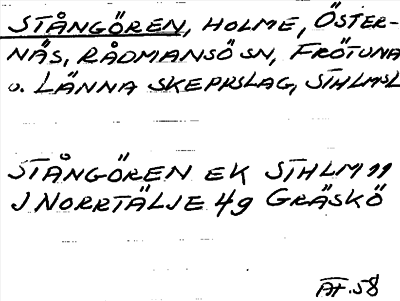 STÅNGÖREN, HOLME, ÖSTER-
NÄS, RÅDMANSÖ SN, FRÖTUNA
o. LÄNNA SKEPPSLAG, STHLMSL
STÅNGÖREN EK STHLM 11
J NORRTÄLJE 4g GRÄSKÖ
AF. 58